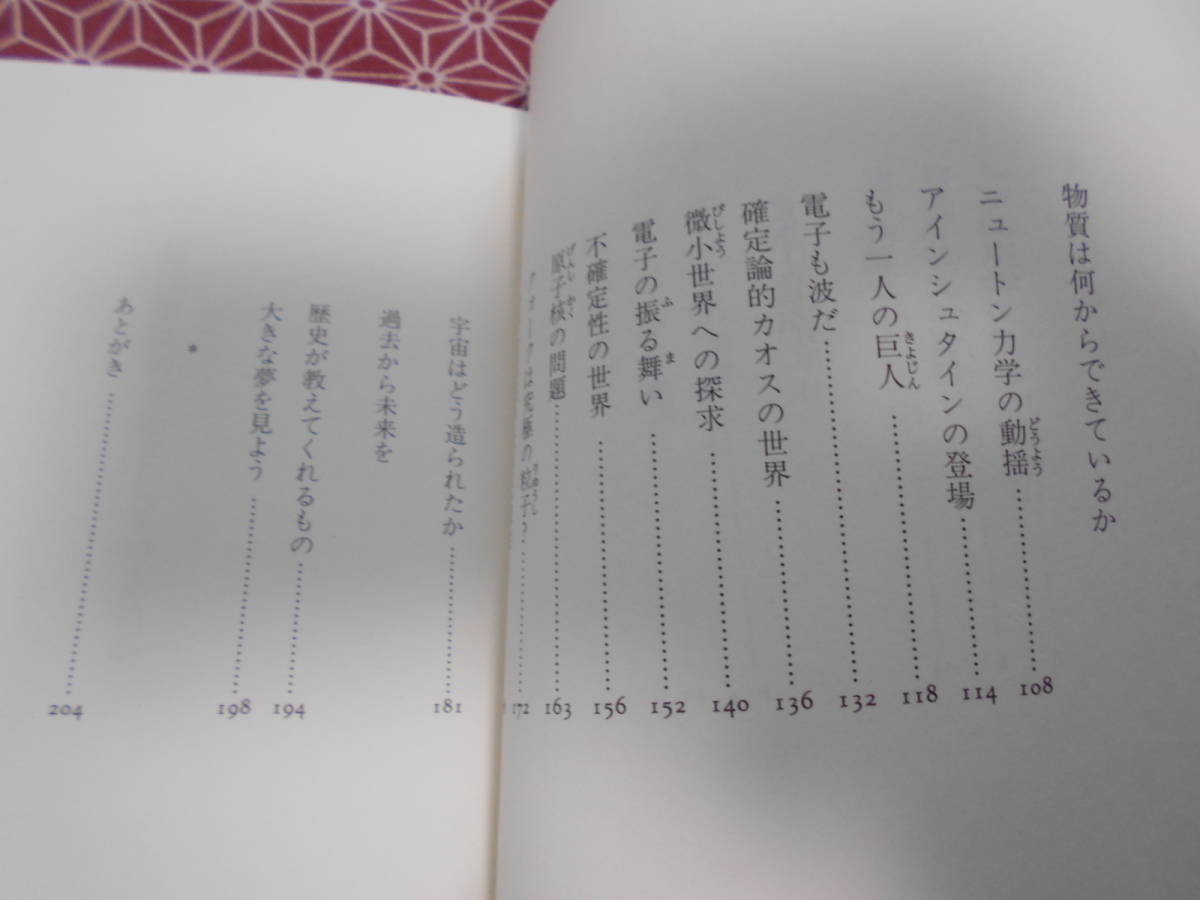 物質は何からできているか
ニュートン力学の動揺……………108
アインシュタインの登場……………114
もう一人の巨人……………118
電子も波だ……………132
確定論的カオスの世界……………136
微小世界への探求……………140
電子の振る舞い……………152
不確定性の世界……………156
原子核の問題……………163
クォークは究極の粒子?……………172
宇宙はどう造られたか……………181
過去から未来を
歴史が教えてくれるもの……………194
大きな夢を見よう……………198
*
あとがき……………204